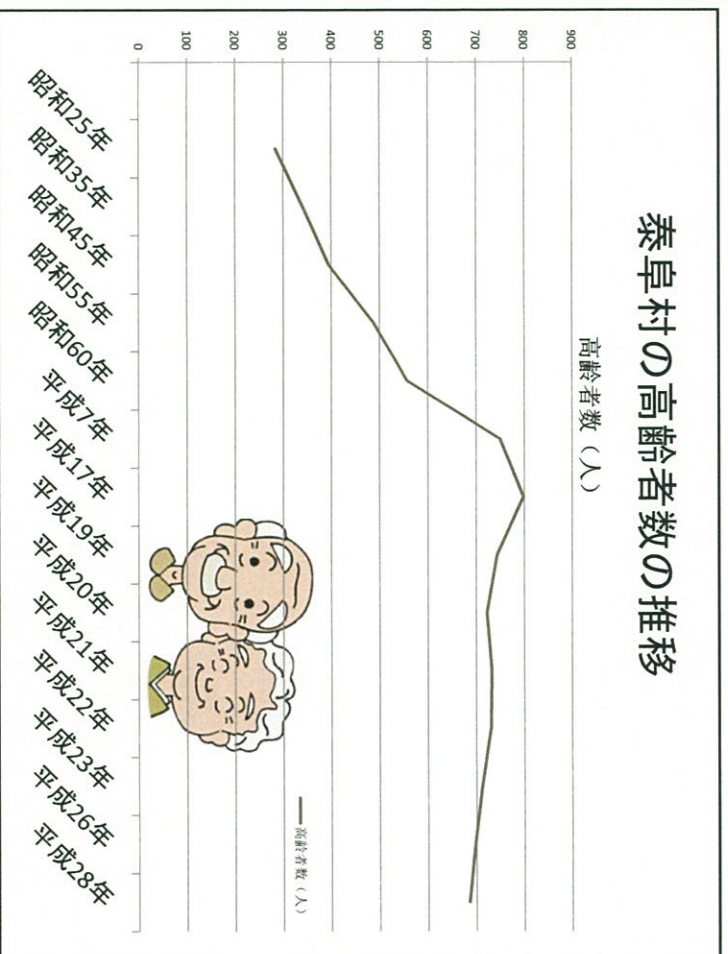 泰阜村の高齢者数の推移
高齢者数（人）
900
800
700
600
500
400
300
200
100
0
昭和25年
昭和35年
昭和45年
昭和55年
昭和60年
平成7年
平成17年
平成19年
平成20年
平成21年
平成22年
平成23年
平成26年
平成28年
高齢者数（人）